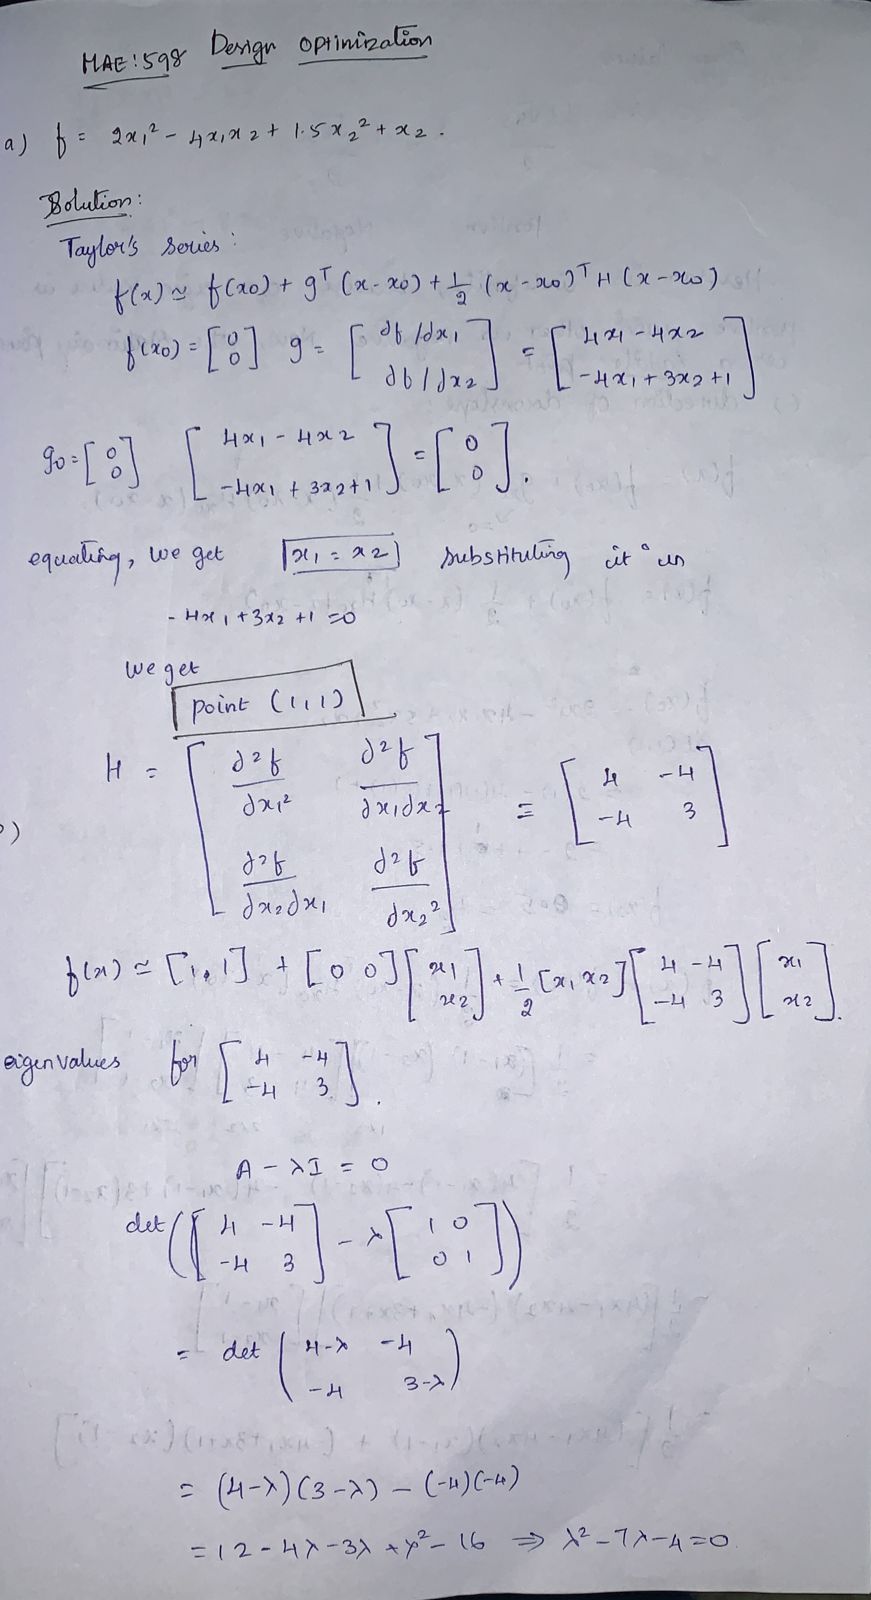 MAE:598 Design Optimization
a) f = 2x₁² - 4x₁x₂ + 1.5x₂² + x₂.
Solution:
Taylor's Series:
f(x) ≃ f(x₀) + gᵀ (x-x₀) + 1/2 (x-x₀)ᵀ H (x-x₀)
f(x₀) = [0 0] g = [∂f/∂x₁ ∂f/∂x₂] = [4x₁-4x₂ -4x₁+3x₂+1]
g₀ = [0 0] [4x₁-4x₂ -4x₁+3x₂+1] = [0 0].
equating, we get x₁ = x₂ substituting it in
-4x₁+3x₂+1=0
we get
point (1,1)
H = [∂²f/∂x₁² ∂²f/∂x₁∂x₂ ∂²f/∂x₂∂x₁ ∂²f/∂x₂²] = [4 -4 -4 3]
f(x) ≃ [1,1] + [0 0][x₁ x₂] + 1/2 [x₁ x₂][4 -4 -4 3][x₁ x₂].
eigenvalues for [4 -4 -4 3].
A - λI = 0
det ([4 -4 -4 3] - λ[1 0 0 1])
= det (4-λ -4 -4 3-λ)
= (4-λ)(3-λ) - (-4)(-4)
= 12-4λ-3λ+λ²-16 ⇒ λ²-7λ-4=0